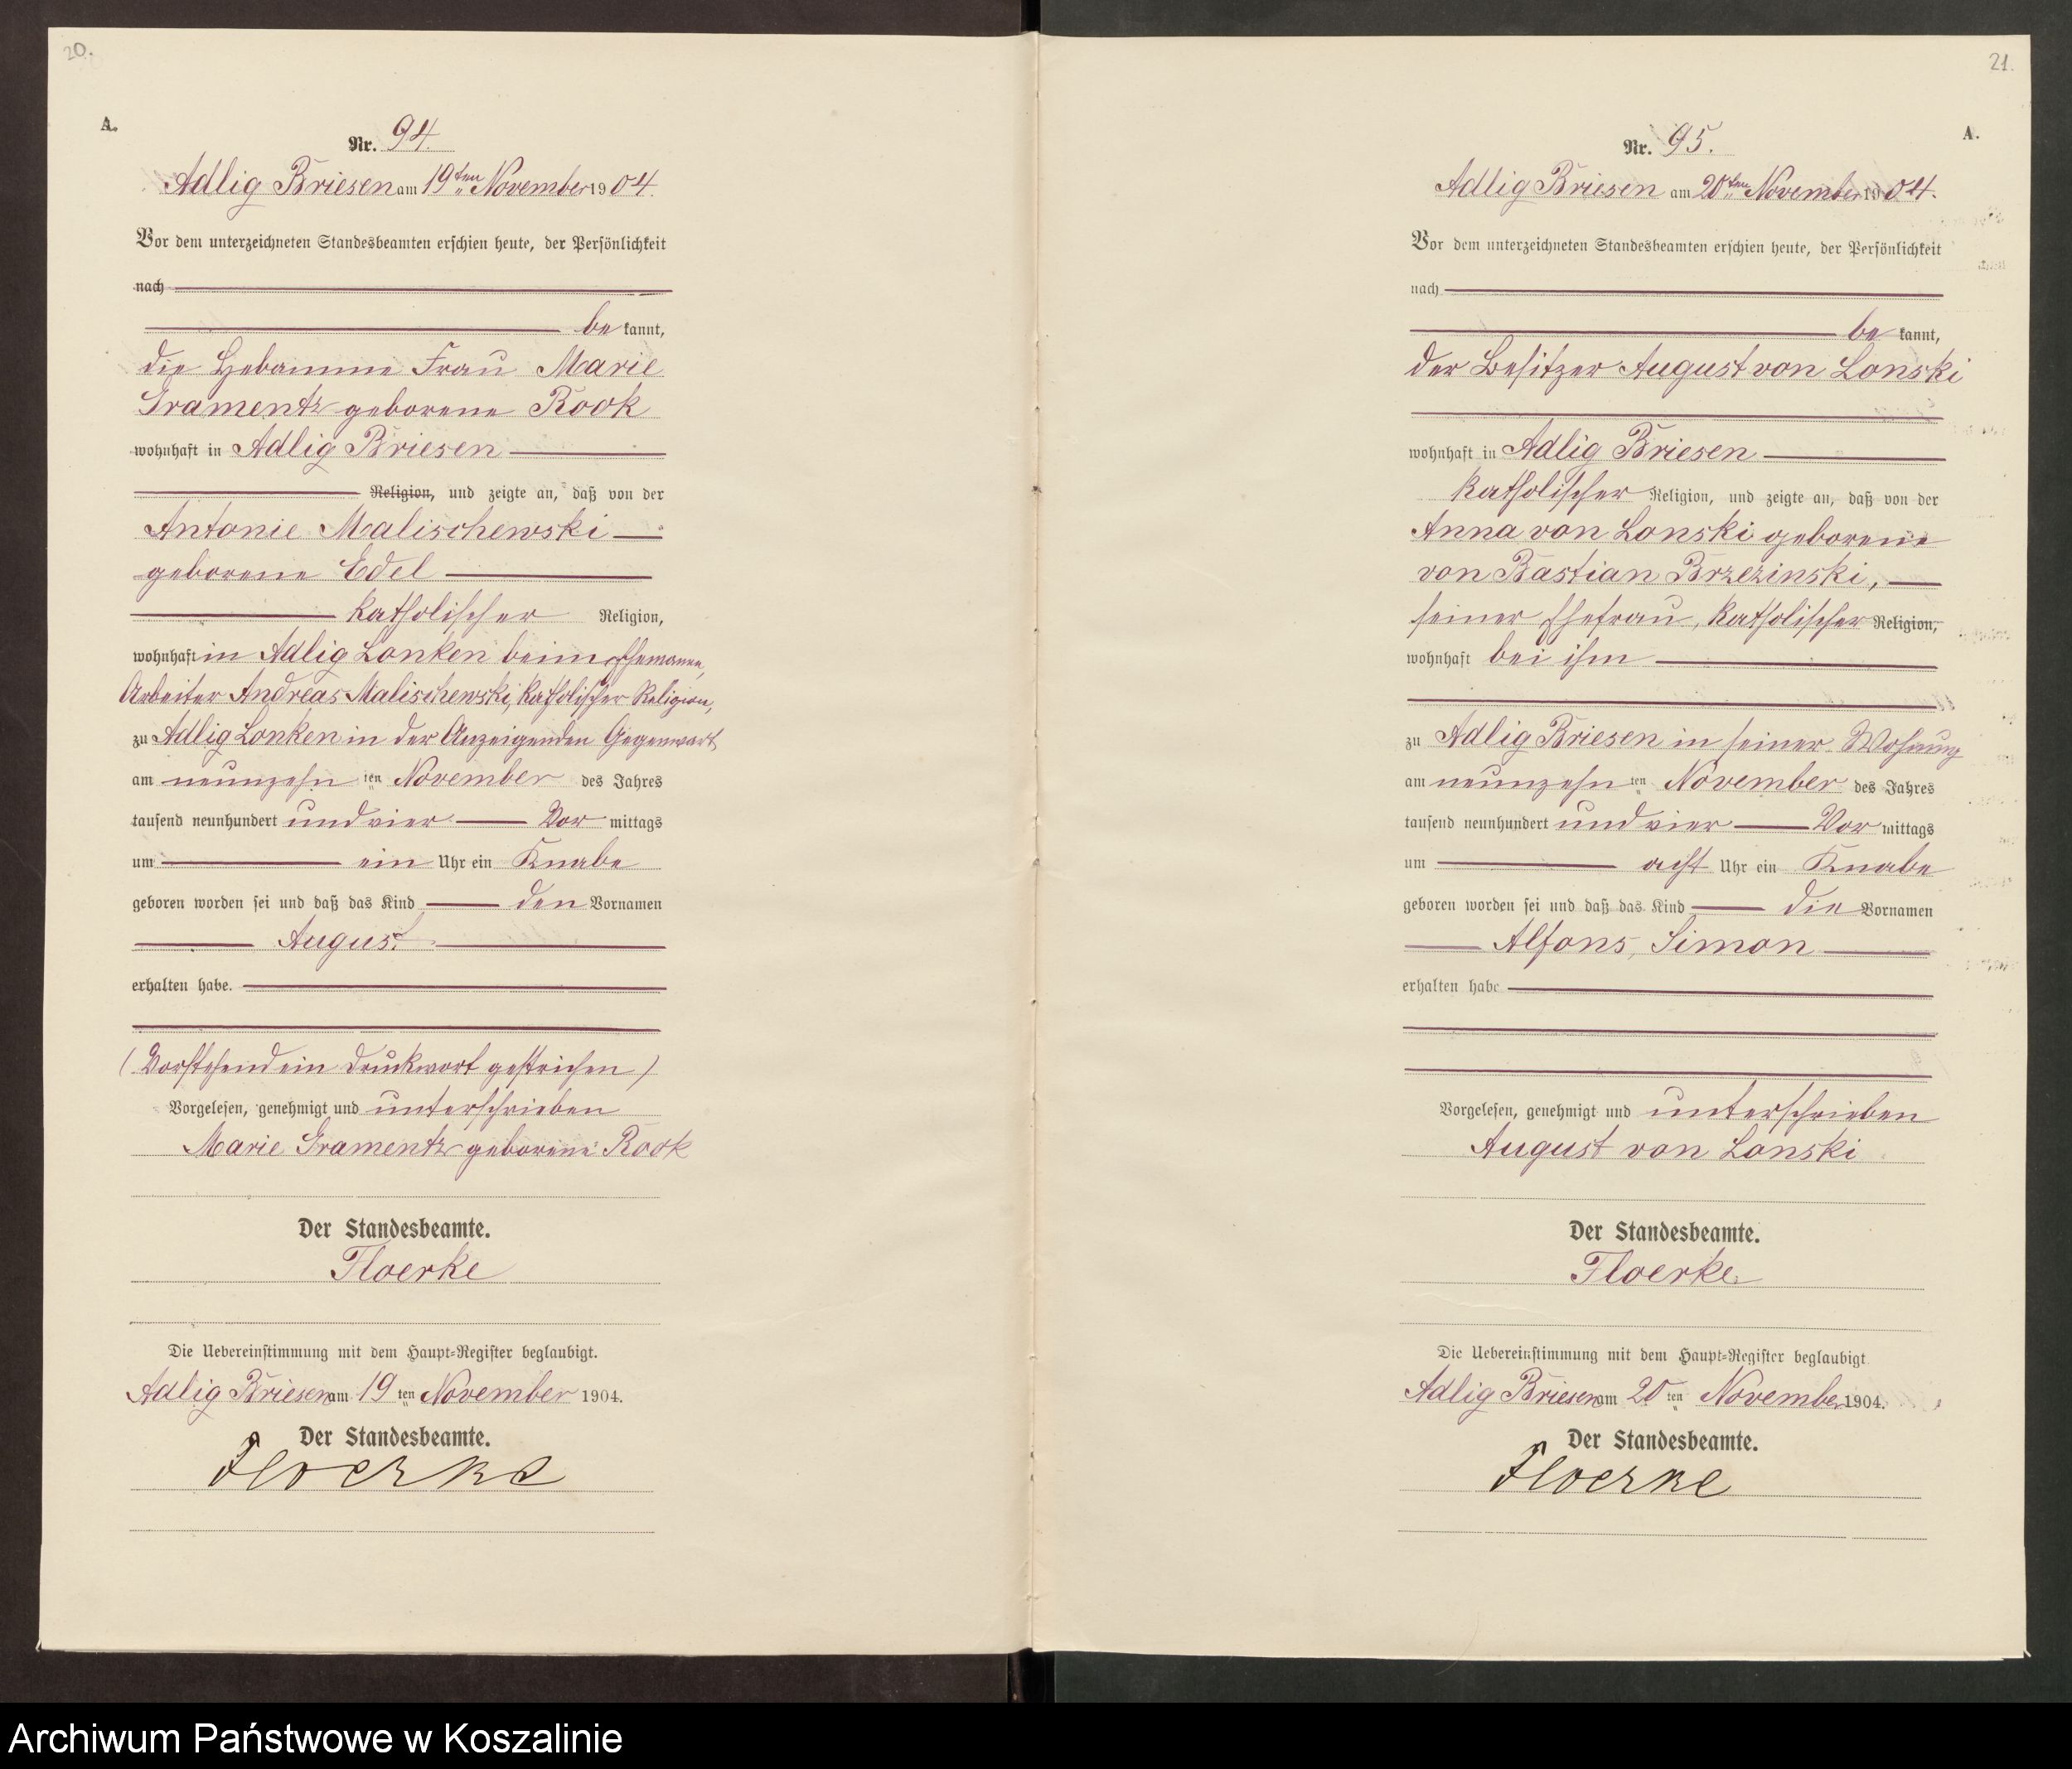 20.
A.
Nr. 94.
Adlig Briesen am 19ten November 1904.
Vor dem unterzeichneten Standesbeamten erschien heute, der Persönlichkeit
nach
be kannt,
die Hebamme Frau Marie
Gramentz geborene Rook
wohnhaft in Adlig Briesen
Religion, und zeigte an, daß von der
Antonie Malischewski
geborene Edel
katholischer Religion,
wohnhaft in Adlig Lonken beim Ehemanne,
Arbeiter Andreas Malischewski, katholischer Religion,
zu Adlig Lonken in der Anzeigenden Gegenwart
am neunzehn ten November des Jahres
tausend neunhundert und vier Vor mittags
um ein Uhr ein Knabe
geboren worden sei und daß das Kind den Vornamen
August
erhalten habe.
(Vorstehend ein Druckwort gestrichen)
Vorgelesen, genehmigt und unterschrieben
Marie Gramentz geborene Rook
Der Standesbeamte.
Floerke
Die Uebereinstimmung mit dem Haupt-Register beglaubigt.
Adlig Briesen am 19 ten November 1904.
Der Standesbeamte.
Floerke
21.
A.
Nr. 95.
Adlig Briesen am 20ten November 1904.
Vor dem unterzeichneten Standesbeamten erschien heute, der Persönlichkeit
nach
be kannt,
der Besitzer August von Lonski
wohnhaft in Adlig Briesen
katholischer Religion, und zeigte an, daß von der
Anna von Lonski geborene
von Bastian Brzezinski,
seiner Ehefrau, katholischer Religion,
wohnhaft bei ihm
zu Adlig Briesen in seiner Wohnung
am neunzehn ten November des Jahres
tausend neunhundert und vier Vor mittags
um acht Uhr ein Knabe
geboren worden sei und daß das Kind die Vornamen
Alfons, Simon
erhalten habe
Vorgelesen, genehmigt und unterschrieben
August von Lonski
Der Standesbeamte.
Floerke
Die Uebereinstimmung mit dem Haupt-Register beglaubigt
Adlig Briesen am 20 ten November 1904.
Der Standesbeamte.
Floerke
Archiwum Państwowe w Koszalinie